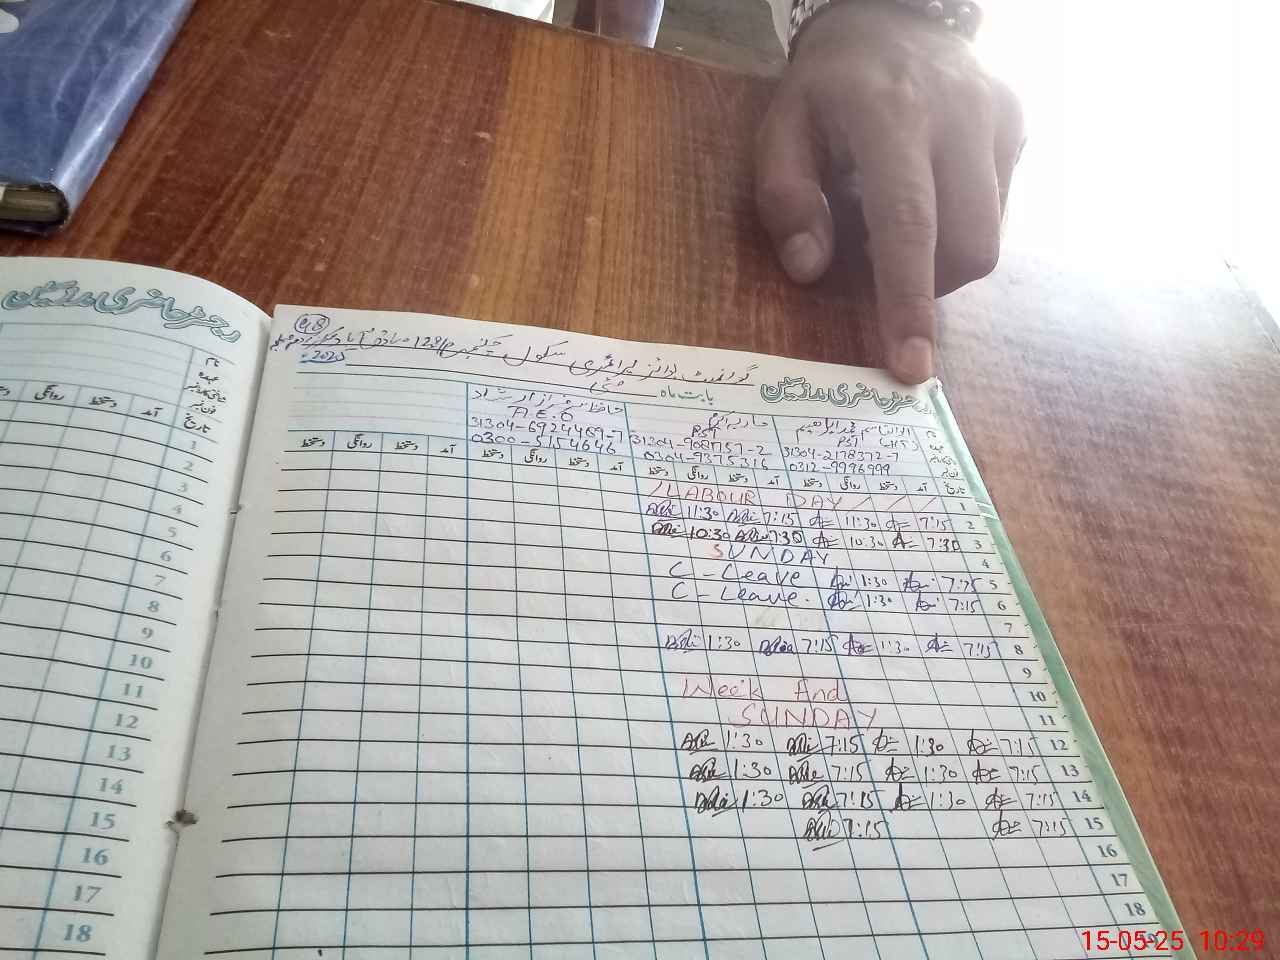 رجسٹر حاضری مدرسین
نام
عہدہ
شناختی کارڈ نمبر
فون نمبر
تاریخ
آمد دستخط روانگی
1
2
3
4
5
6
7
8
9
10
11
12
13
14
15
16
17
18
48
گورنمنٹ بوائز پرائمری سکول چک نمبر 128/P صادق آباد
رجسٹر حاضری مدرسین بابت ماہ مئی 2025
نام
عہدہ PST PST A.E.O
31304-2178372-7 31304-9087157-2 31304-6924469-7
فون نمبر 0312-9996999 0304-9375316 0300-5154646
تاریخ آمد دستخط روانگی دستخط آمد دستخط روانگی دستخط آمد دستخط روانگی دستخط آمد دستخط روانگی دستخط
1 LABOUR DAY
2 7:15 11:30 7:15 11:30
3 7:30 10:30 7:30 10:30
4 SUNDAY
5 7:15 1:30 C-Leave
6 7:15 1:30 C-Leave.
7
8 7:15 1:30 7:15 1:30
9
10 Week And
11 SUNDAY
12 7:15 1:30 7:15 1:30
13 7:15 1:30 7:15 1:30
14 7:15 1:30 7:15 1:30
15 7:15 7:15
16
17
18
15-05-25 10:29